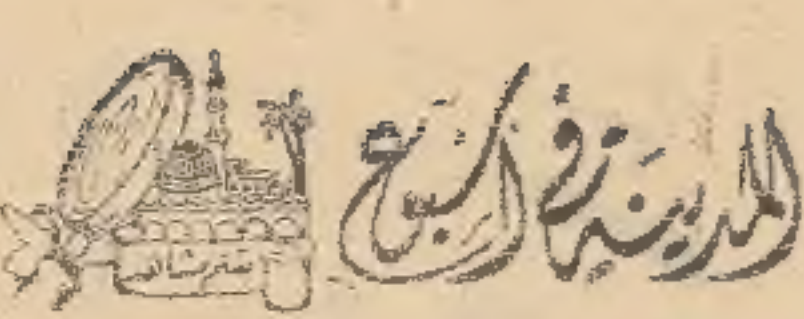 المدينة في أسبوع